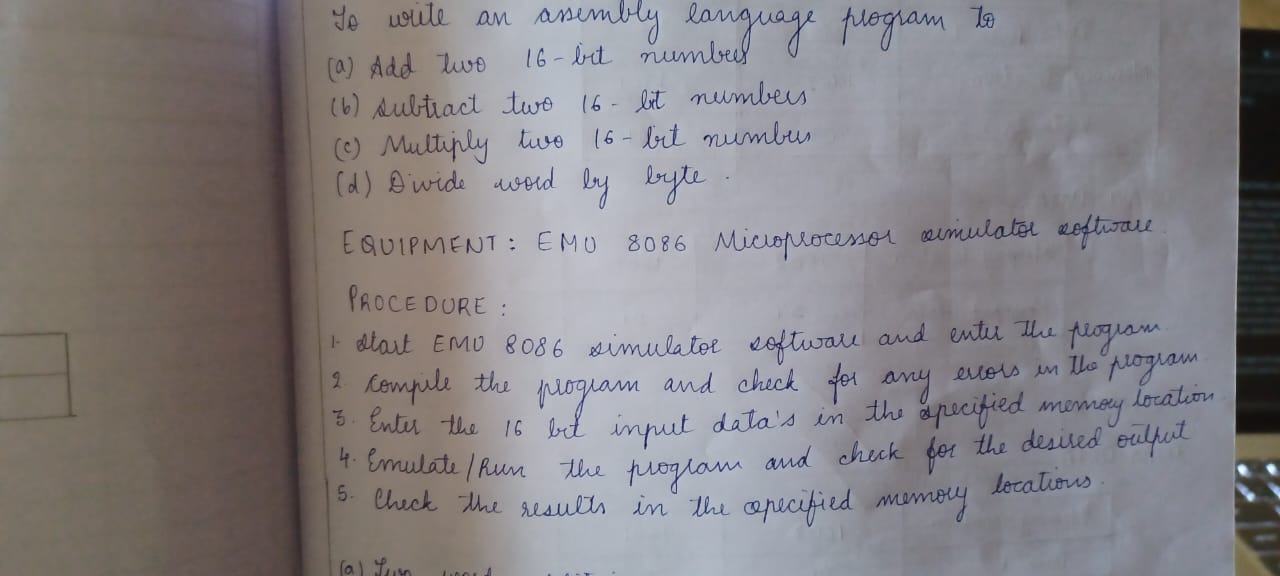 To write an assembly language program to
(a) Add two 16-bit numbers
(b) Subtract two 16-bit numbers
(c) Multiply two 16-bit numbers
(d) Divide word by byte.
EQUIPMENT: EMU 8086 Microprocessor simulator software.
PROCEDURE:
1. Start EMU 8086 simulator software and enter the program
2. Compile the program and check for any errors in the program
3. Enter the 16 bit input data's in the specified memory location
4. Emulate/Run the program and check for the desired output
5. Check the results in the specified memory locations.
(a) Two word